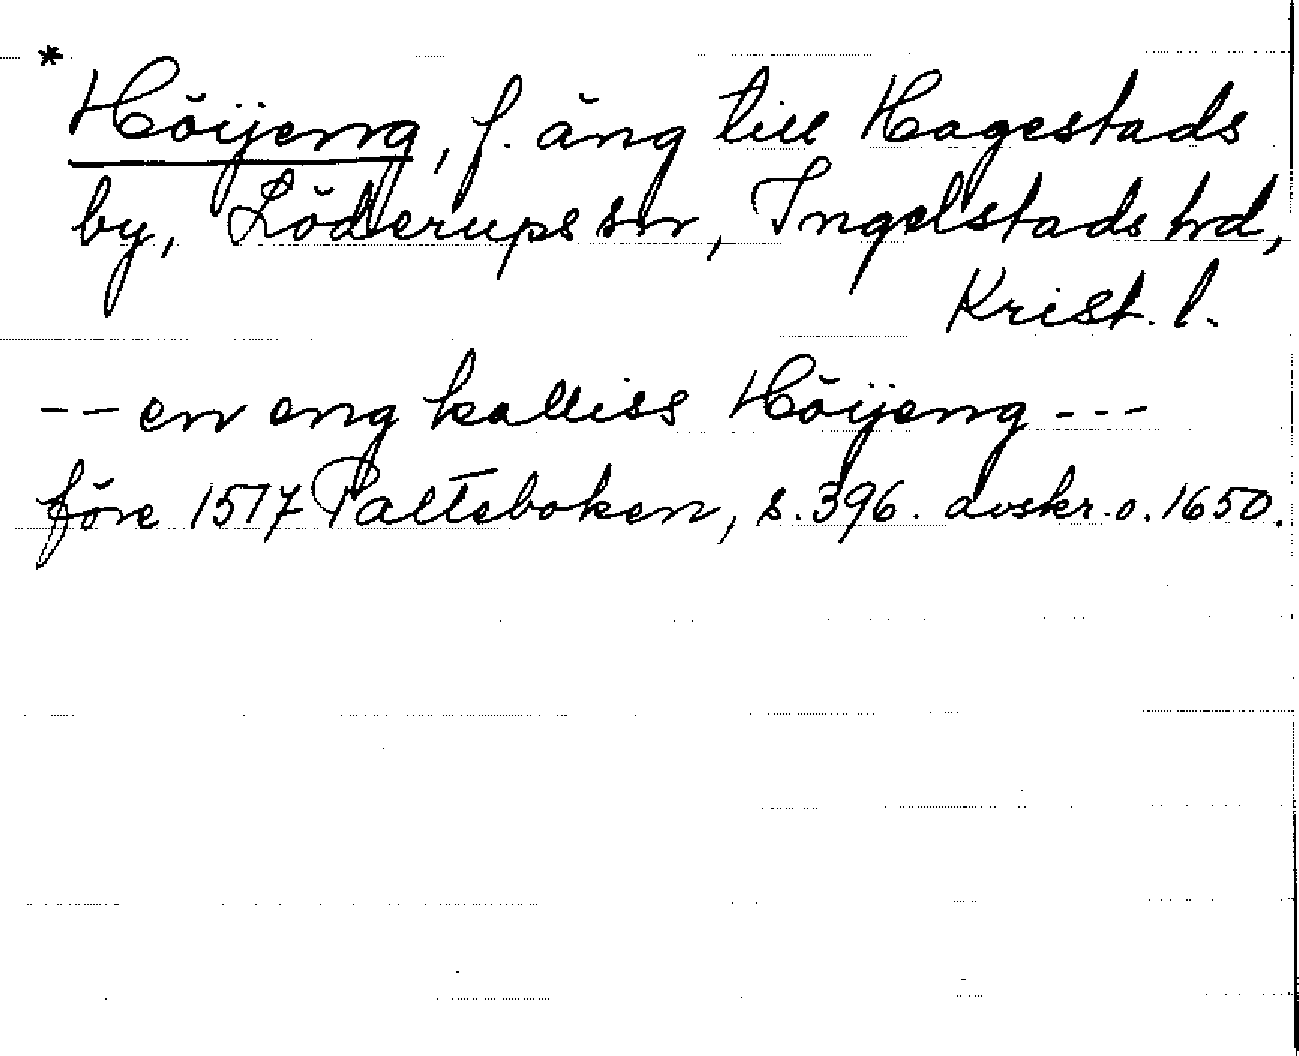 * Höÿeng, f. äng till Hagestads
by, Löderups sn, Ingelstads hd,
Krist. l.
-- en eng kalliss Höÿeng ---
före 1517 Palteboken, s. 396. avskr. o. 1650.